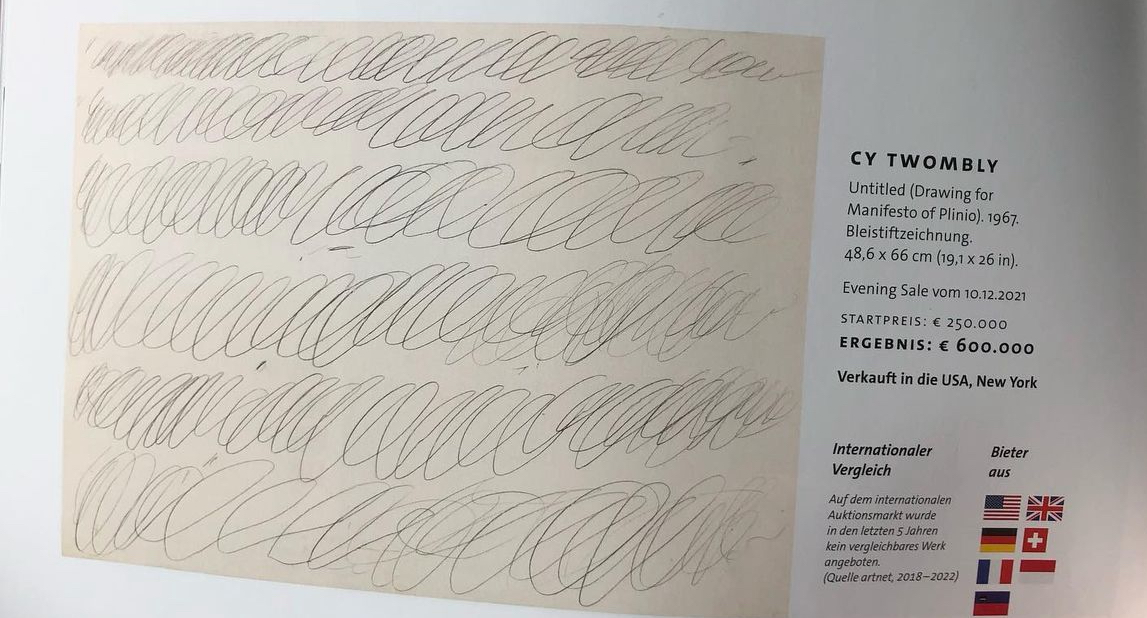 CY TWOMBLY
Untitled (Drawing for
Manifesto of Plinio). 1967.
Bleistiftzeichnung.
48,6 x 66 cm (19,1 x 26 in).
Evening Sale vom 10.12.2021
STARTPREIS: € 250.000
ERGEBNIS: € 600.000
Verkauft in die USA, New York
Internationaler
Vergleich
Auf dem internationalen
Auktionsmarkt wurde
in den letzten 5 Jahren
kein vergleichbares Werk
angeboten.
(Quelle artnet, 2018–2022)
Bieter
aus